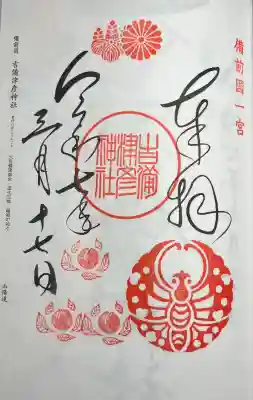 備前國一宮
奉拝
吉備津彦神社
令和七年
三月十七日
備前国 吉備津彦神社
山陽道